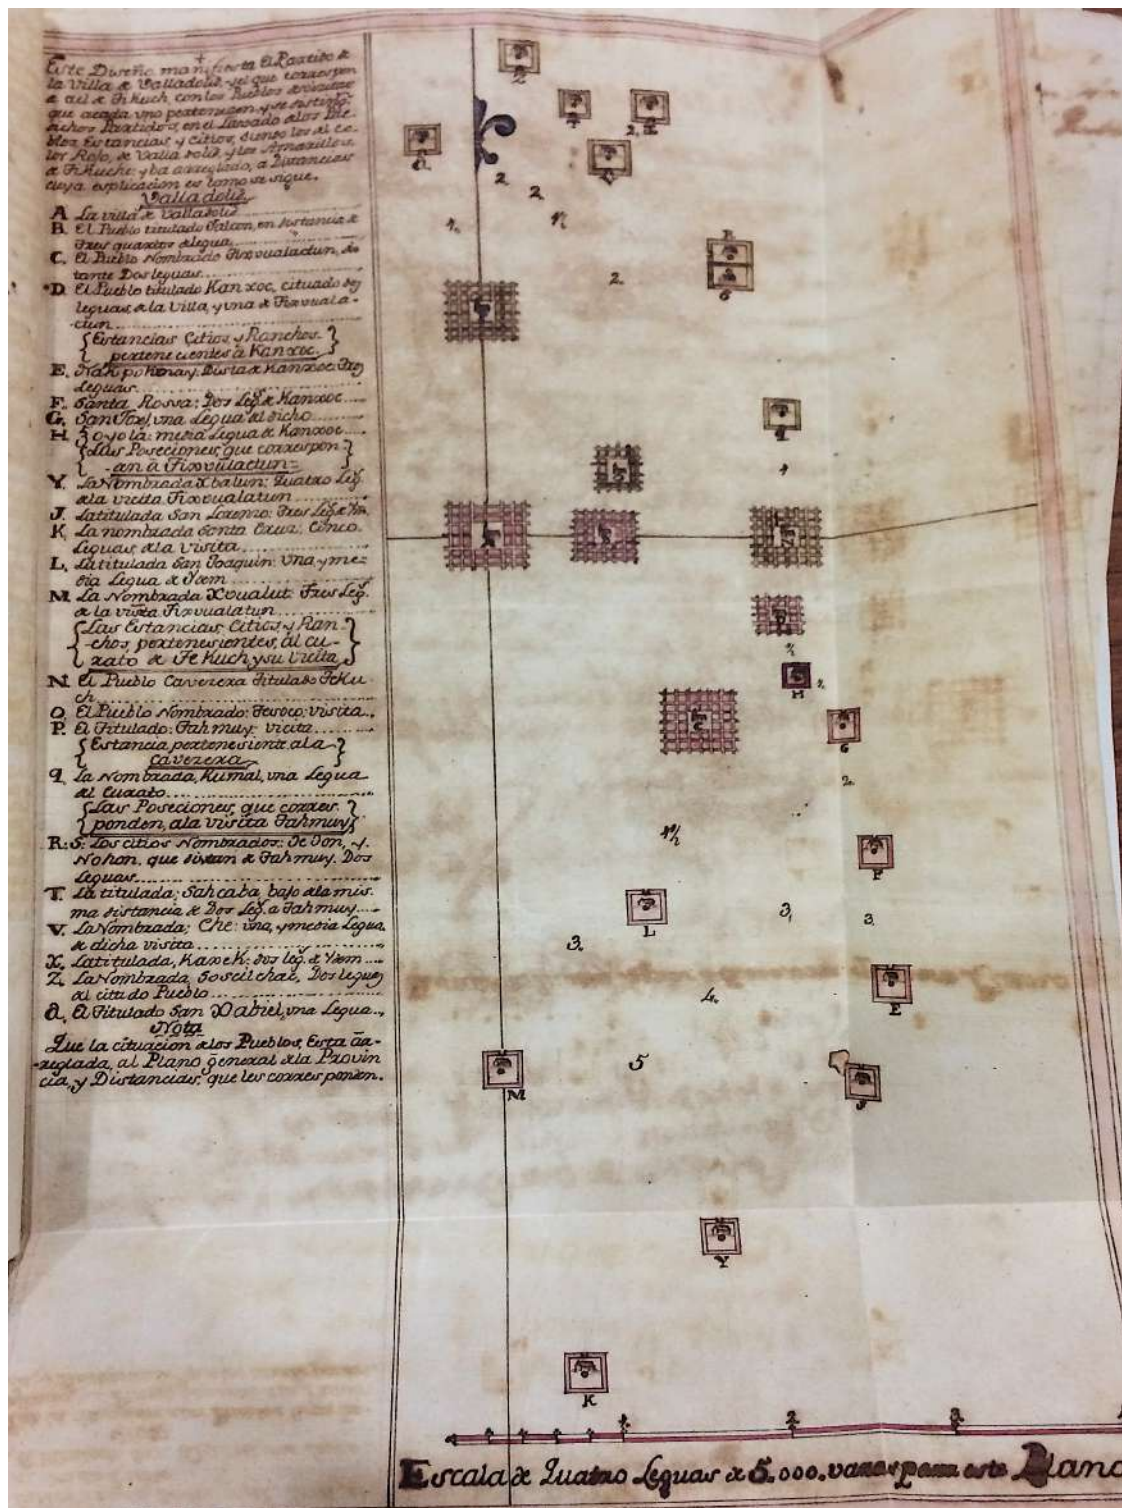 Este Diseño, manifiesta El Partido de
la Villa de Valladolid, y el que corresponde
a el de Tikuch, con los Pueblos de visita
que a cada uno pertenesen, y se distingue
dichos Partidos, en el Lavado de los Pue-
blos, Estancias, y Citios, siendo los de Co-
lor Rojo, de Valladolid, y los Amarillos
de Tikuche: y ba arreglado, a Distancias
cuya explicacion es como se sigue.
Valladolid
A La villa de Valladolid
B. El Pueblo titulado en distancia de
Tres quartos de legua
C. El Pueblo Nombrado Tixvualactun, dis-
tante Dos leguas
D El Pueblo titulado Kanxoc, cituado dos
leguas de la Villa, y una de Tixvuala-
ctun
Estancias Citios y Ranchos
pertenecientes à Kanxoc.
E. Dista de Kanxoc Tres
Leguas
F. Santa Rossa: Dos Leg.s de Kanxoc
G. San una Legua del dicho
H Soyolá: media Legua de Kanxoc
Las Poseciones, que correspon-
den à Tixvualactun
Y. La Nombrada Xbalun: Quatro Leg.s
de la vicita Tixvualatun
J. La titulada San Lorenzo: Tres Leg.s de
K. La nombrada Santa Cruz: Cinco
Leguas de la Visita
L. La titulada San Joaquin: Una y me-
dia Legua de
M La Nombrada Xvualut: Tres Leg.s
de la visita Tixvualatun
Las Estancias, Citios, y Ran-
chos, pertenesientes, àl cu-
rato de TeKuch, y su Visita
N. El Pueblo Caverera Titulado TeKu-
ch
O. El Pueblo Nombrado: Tesoco: visita
P. El Titulado: Tahmuy: vicita
Estancia, pertenesiente, a la
caverera
q. La Nombrada, Kumal, una Legua
del Curato
Las Poseciones, que corres-
ponden, a la visita Tahmuy
R: S: Los citios Nombrados: y
Nohon, que distan de Tahmuy, Dos
Leguas
T. La titulada: Sahcaba, bajo de la mis-
ma distancia de Dos Leg.s a Tahmuy
V. La Nombrada; Che: una, y media Legua
de dicha visita
X. La titulada, Kaxek: dos leg.s de
Z. La Nombrada, Dos leguas
del citado Pueblo
a. El Titulado San Xabiel, una Legua
Nota
Que la cituación de los Pueblos, Esta ar-
reglada, al Plano general de la Provin
cia, y Distancias, que les corresponden.
Z
T
X
a
V
2
2
1
2
R
S
q
1
A
B
H
G
2
1 1/2
F
L
3
3
3
E
4
M
5
J
Y
K
1 2 3
Escala de Quatro Leguas de 5.000. varas para este Plano